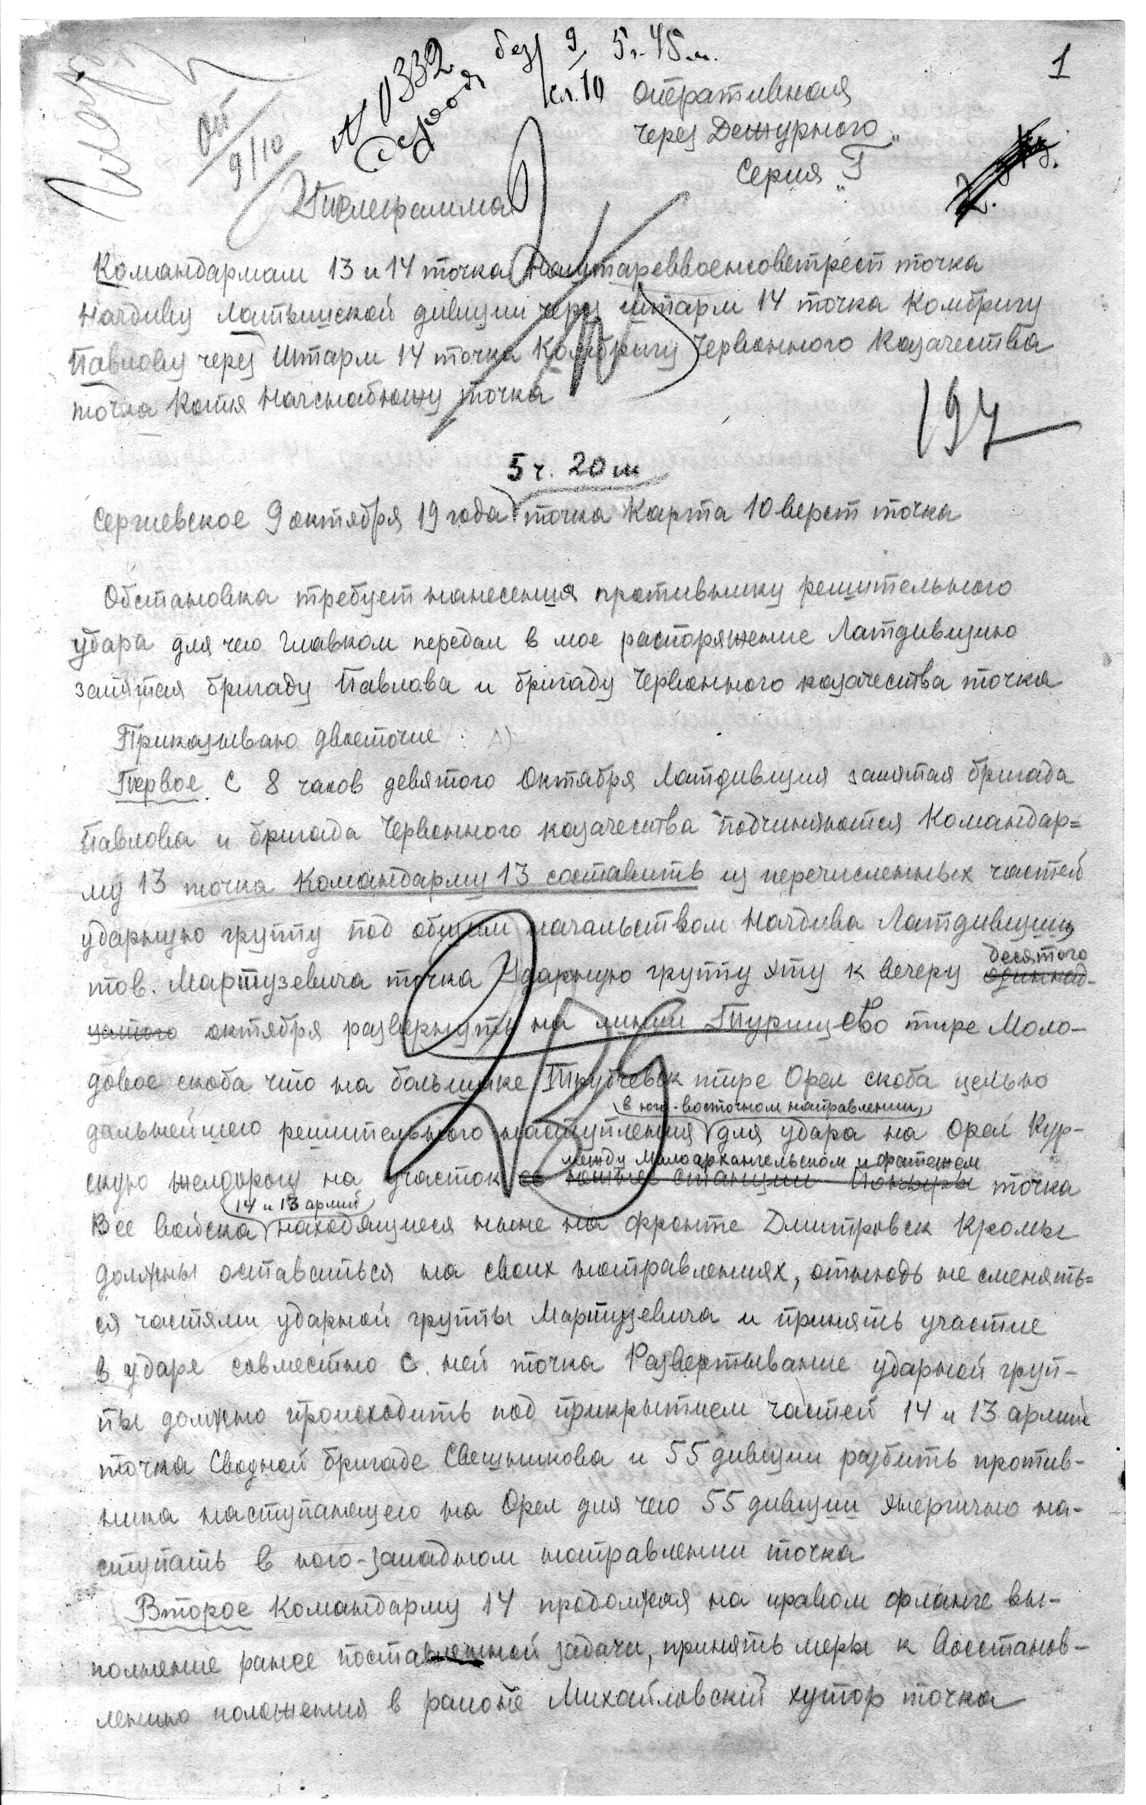 1
без 9 5 ч. 45 м.
кл. 10
№ 0332
Оп
9/10
Оперативная
через Дежурного
Серия "Г"
Телеграмма
Командармам 13 и 14 точка Наштареввоенсоветрест точка
Начдиву Латышской дивизии через штарм 14 точка Комбригу
Павлову через Штарм 14 точка Комбригу Червонного Казачества
точка Копия Начснабюжу точка
197
5 ч. 20 м
Сергиевское 9 октября 19 года точка Карта 10 верст точка
Обстановка требует нанесения противнику решительного
удара для чего Главком передал в мое распоряжение Латдивизию
запятая бригаду Павлова и бригаду Червонного казачества точка
Приказываю двоеточие :
Первое. С 8 часов девятого Октября Латдивизия запятая бригада
Павлова и бригада Червонного казачества подчиняются Командар=
му 13 точка Командарму 13 составить из перечисленных частей
ударную группу под общим начальством Начдива Латдивизии
десятого
тов. Мартузевича точка Ударную группу эту к вечеру одиннад-
цатого октября развернуть на линии Турищево тире Моло-
довое скоба что на большаке Трубчевск тире Орел скоба целью
в юго-восточном направлении
дальнейшего решительного наступления для удара на Орел Кур-
между Малоархангельском и Фатежем
скую желдорогу на участок точка
14 и 13 армий
Все войска находящиеся ныне на фронте Дмитровск Кромы
должны оставаться на своих направлениях, отнюдь не сменять=
ся частями ударной группы Мартузевича и принять участие
в ударе совместно с ней точка Развертывание ударной груп-
пы должно происходить под прикрытием частей 14 и 13 армий
точка Сводной бригаде Свешникова и 55 дивизии разбить против-
ника наступающего на Орел для чего 55 дивизии энергично на-
ступать в юго-западном направлении точка
Второе Командарму 14 продолжая на правом фланге вы-
полнение ранее поставленной задачи, принять меры к восстанов-
лению положения в районе Михайловский хутор точка